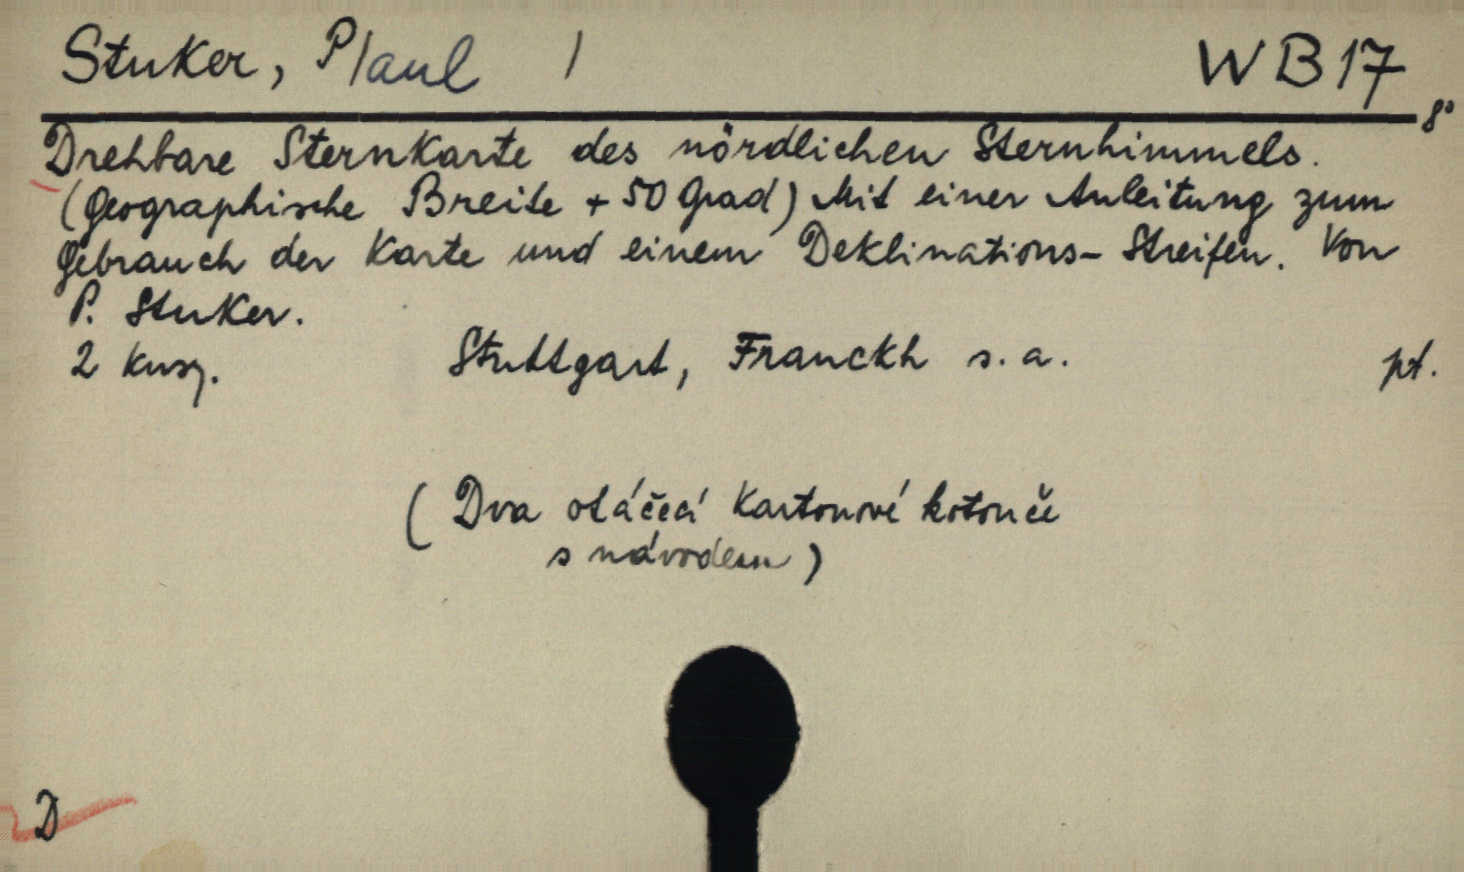 Stuker, P/aul / WB 17
8°
Drehbare Sternkarte des nördlichen Sternhimmels.
(Geographische Breite + 50 Grad) Mit einer Anleitung zum
Gebrauch der Karte und einem Deklinations-Streifen. Von
P. Stuker.
2 kusy. Stuttgart, Franckh s. a. pt.
(Dva otáčecí kartonové kotouče
s návodem)
D